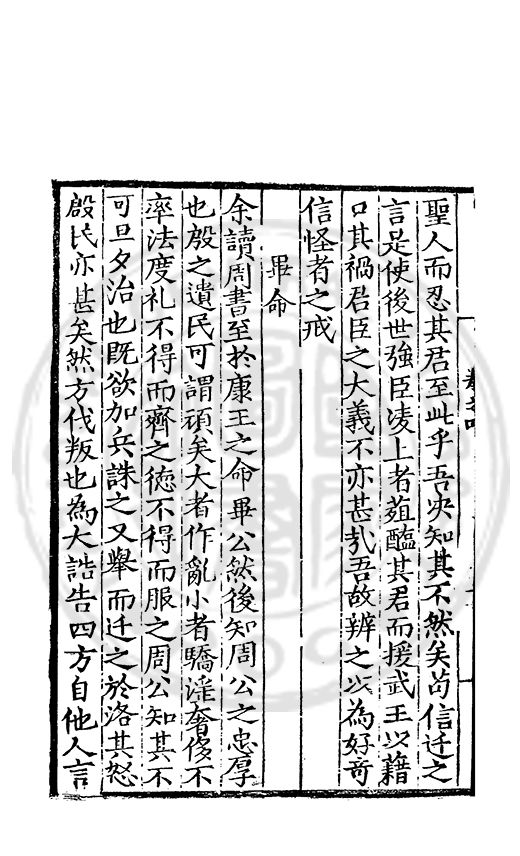 聖人而忍其君至此乎吾决知其不然矣苟信迁之
言是使後世強臣凌上者葅醢其君而援武王以藉
口其禍君臣之大義不亦甚㢤吾故辨之以為好竒
信怪者之戒
畢命
余讀周書至扵康王之命畢公然後知周公之忠厚
也殷之遺民可謂頑矣大者作亂小者驕淫奢侈不
率法度礼不得而齊之徳不得而服之周公知其不
可旦夕治也既欲加兵誅之又舉而迁之於洛其怒
殷民亦甚矣然方代叛也為大誥告四方自他人言